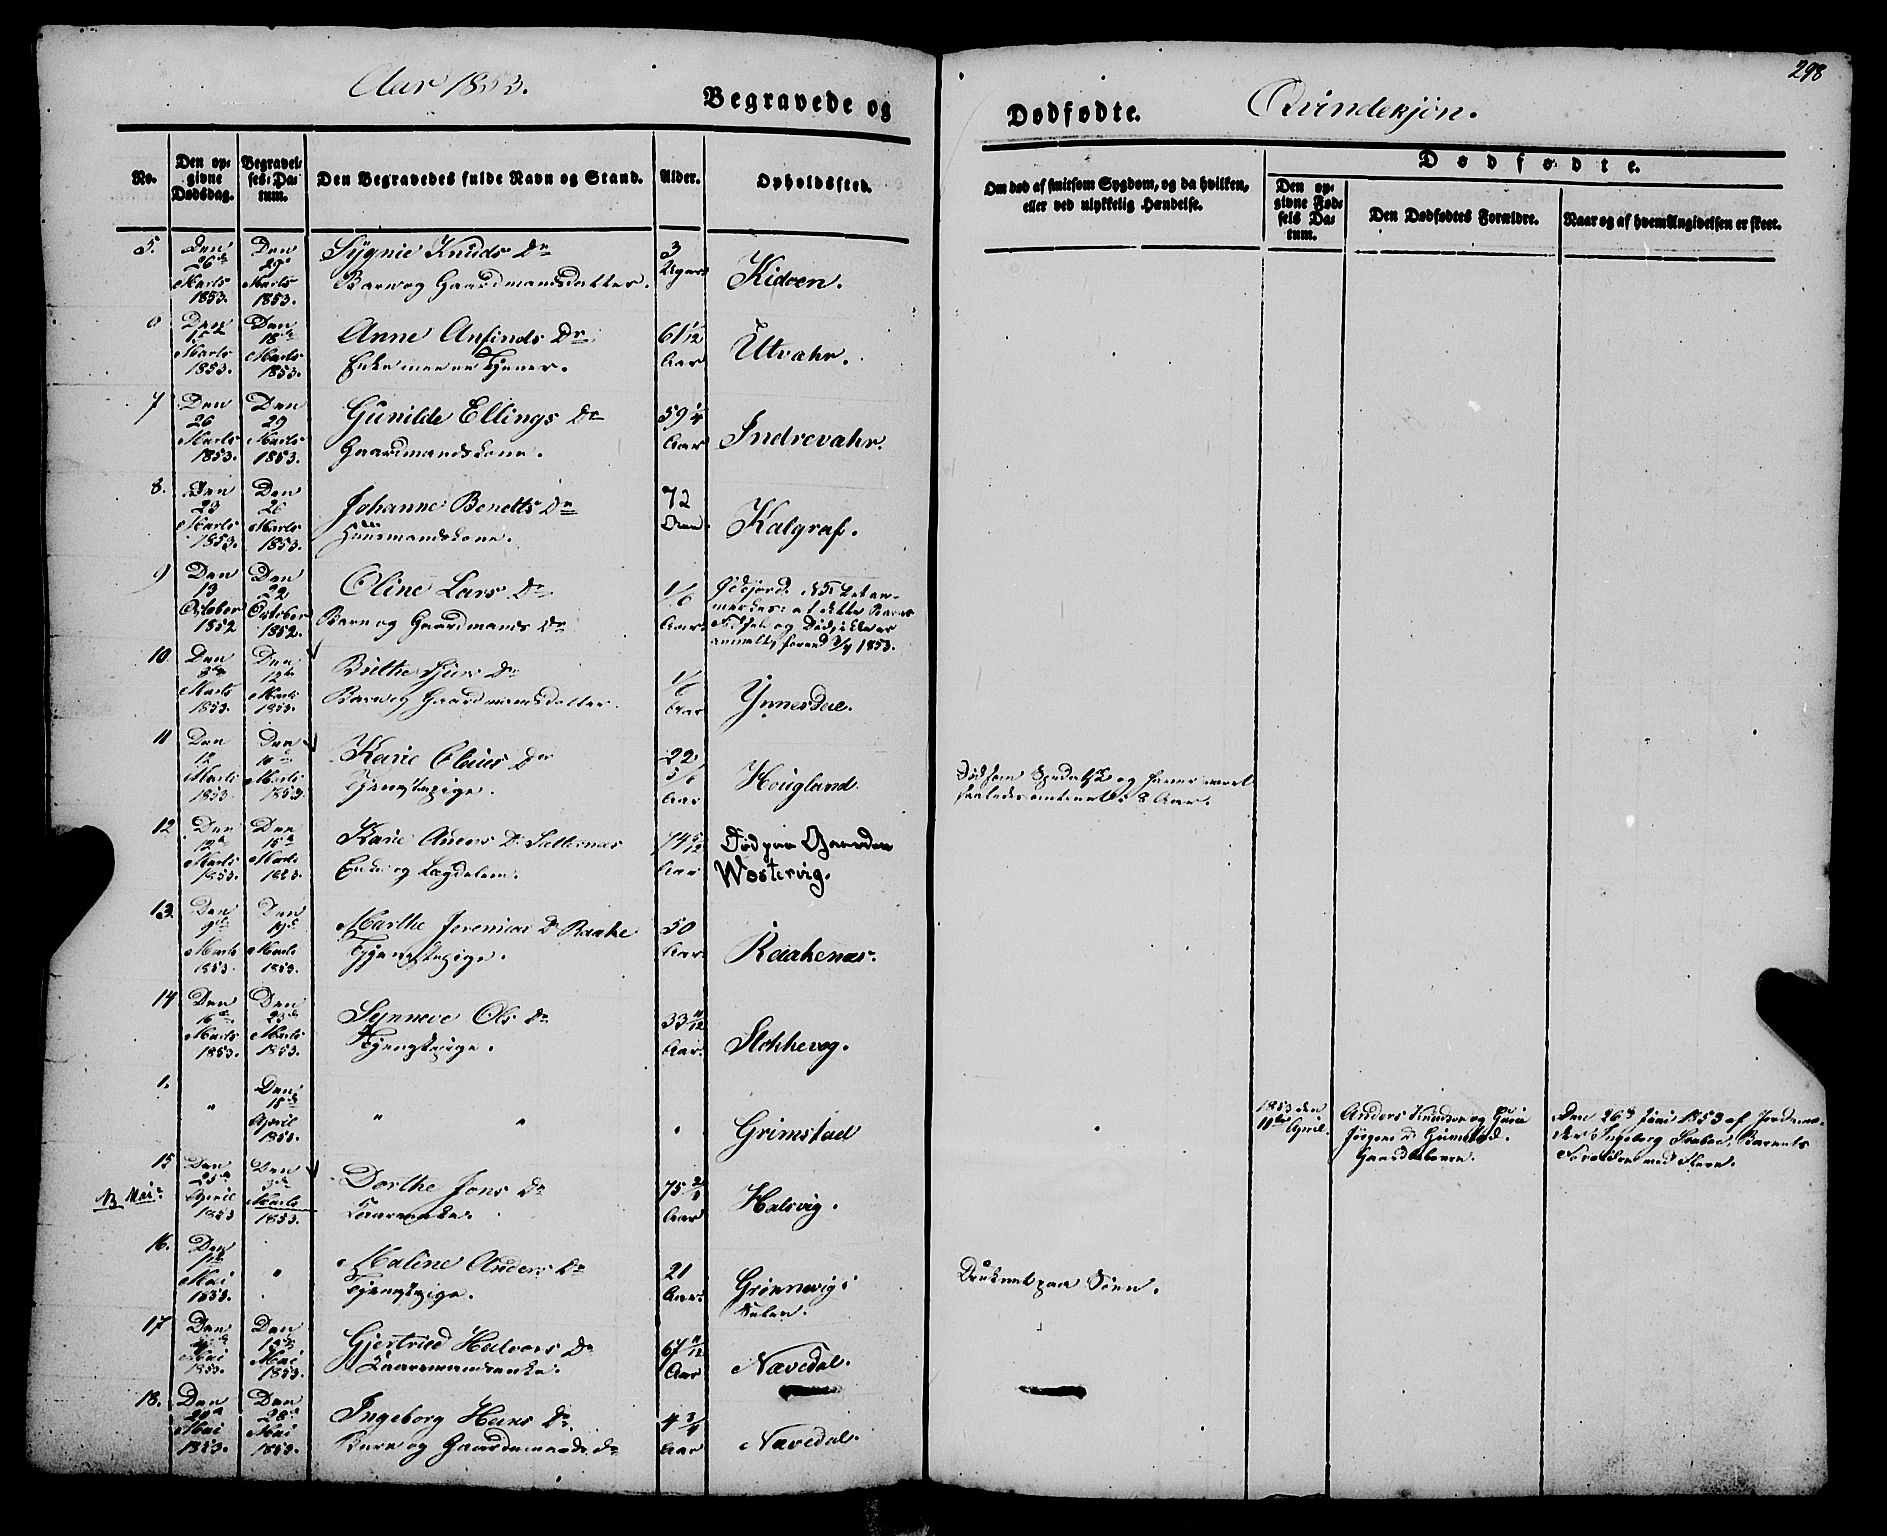 298
Aar 1853.
Begravede og
Dødfødte.
Qvindekjøn.
No.
Den op-
givne
Dødsdag.
Begravel-
ses-Da-
tum.
Den Begravedes fulde Navn og Stand.
Alder.
Opholdssted.
Om død af smitsom Sygdom, og da hvilken,
eller ved ulykkelig Hændelse.
Dødfødte.
Den op-
givne Fød-
sels Da-
tum.
Den Dødfødtes Forældre.
Naar og af hvem Angivelsen er skeet.
5.
Den
26de
Marts
1853.
Den
29de
Marts
1853.
Sygnie Knuds Dr
Barn og Gaardmandsdatter.
3
Kidøen.
Den
Marts
1853.
Den
18de
Marts
1853.
Anne Anfinds Dr
61 1/12
Aar
Utvahr.
7
Den
26
Marts
1853.
Den
29
Marts
1853.
Gunilde Ellings Dr
Gaardmandskone.
59 1/4
Aar
Indrevahr.
8.
Den
23
Marts
1853.
Den
26
Marts
1853.
Johanne Benetts Dr
Huusmandskone.
72
Kalgraf.
9
Den
13
October
1852
Den
22
October
1852.
Oline Lars Dr
Barn og Gaardmands Dr
1/6
Aar.
af dette Barns
Fødsel og Død, ikke er
anmeldt, førend 3/4 1853.
10.
Den
Marts
1853.
Den
12te
Marts
1853.
Brithe Sjurs Dr
Barn og Gaardmandsdatter.
1/6
Aar
Ynnesdal.
11
Den
12
Marts
1853
Den
Marts
1853
Karie Claus Dr
Tjenestepige.
22
5/6
Aar
Hougland
Død som Spedalsk og
8 Aar.
12
Den
12te
Marts
1853.
Den
15de
Marts
1853.
Karie Anders Dr Sætternæs
Enke og Lægdslem.
74 5/12
Aar
Død paa Gaarden
Wostervig.
13.
Den
9de
Marts
1853.
Den
19de
Marts
1853.
Marthe Jeremias Dr Raake
Tjenestepige.
50
Aar.
Raakenæs.
14
Den
16de
Marts
1853.
Den
23de
Marts
1853.
Synneve Ols Dr
Tjenestepige.
33 11/12
Aar.
Slokkevog.
1.
"
Den
15de
April
1853.
"
"
"
Grimstad
1853 den
11te April.
Anders Knudsen og Gurie
Jørgens Dr Grimstad.
Den 26de Juni 1853 af Jordemo-
der Ingeborg Barnets
Forældre med flere.
15
NB Mai.
Den
25de
April
1853
Den
3de
Marts
1853.
Dorthe Jons Dr
75
Aar
Halsvig.
16.
Den
1ste
Mai
1853.
"
Maline Anders Dr
Tjenestepige.
21
Aar.
Grønnevig i
Sulen.
Druknet paa Søen.
17
Den
Mai
1853.
Den
13de
Mai
1853.
Gjertrud Halvors Dr
67 11/12
Aar
Nævedal.
18.
Den
20de
Mai
1853.
Den
28de
Mai
1853.
Ingeborg Hans Dr
Barn og Gaardmands Dr
4 3/4
Aar
Nævedal.